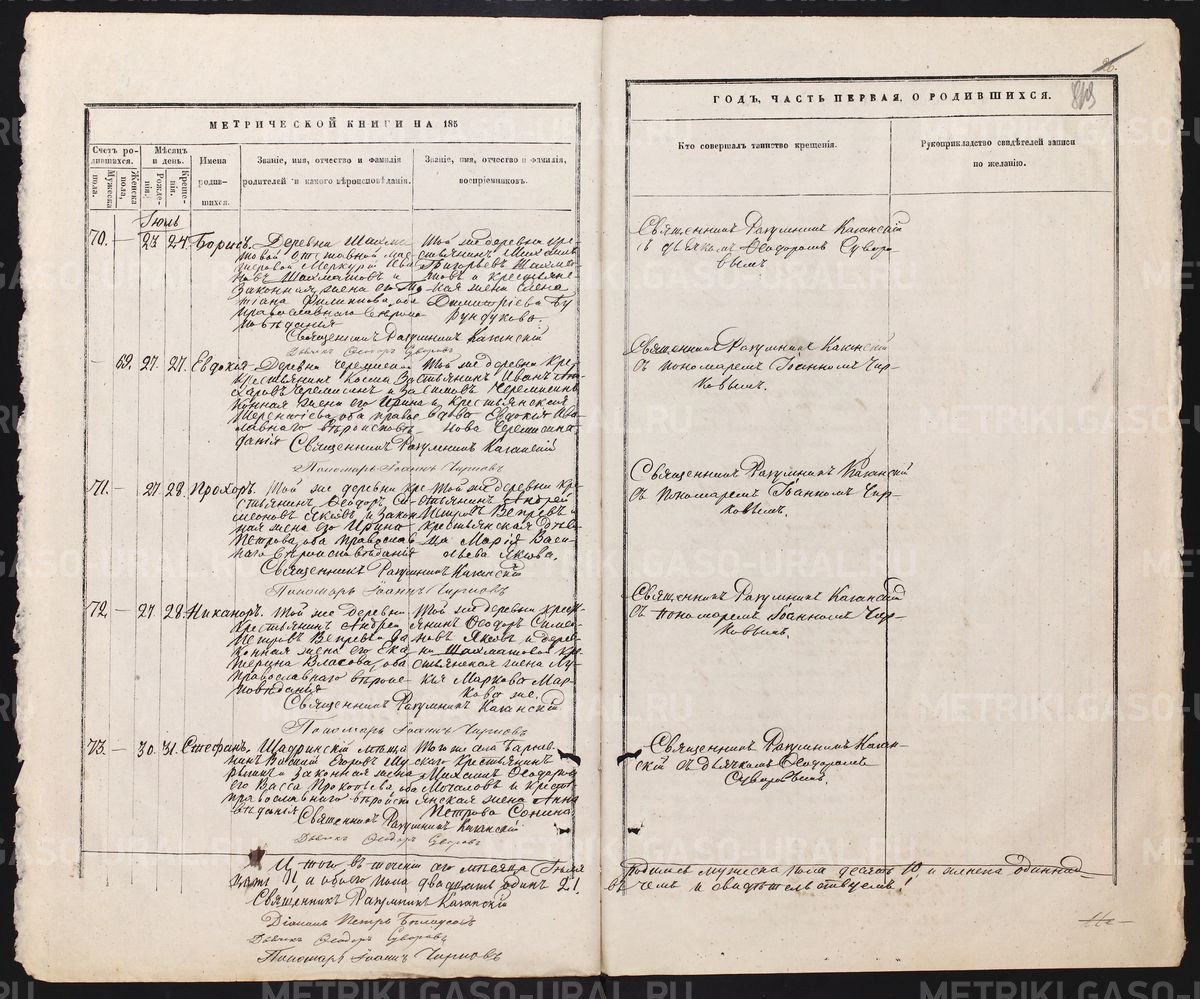 МЕТРИЧЕСКОЙ КНИГИ НА 185
Счетъ родившихся.
Мужеска пола.
Женска пола.
Мѣсяцъ и день.
Рожденія.
Крещенія.
Имена родившихся.
Званіе, имя, отчество и фамилія родителей и какого вѣроисповѣданія.
Званіе, имя, отчество и фамилія, воспріемниковъ.
Іюль
70. — 23 24 Борисъ. Деревни Шахматовой отставной
Меркурій Ивановъ Шахматовъ и
законная жена его Татіана Филиппова, оба
православнаго вѣроисповѣданія
Той же деревни крестьянинъ Михаилъ
Григорьевъ Шахматовъ и крестьянская жена Елена
Димитріева Бундукова.
Священникъ Разумникъ Каганскій
Дьячкъ Ѳеодоръ Суворовъ
— 69. 27. 27. Евдокія. Деревни
крестьянинъ Косма Захаровъ Черемисинъ и законная жена его Ирина
Терентіева, оба православнаго вѣроисповѣданія
Той же деревни крестьянинъ Иванъ
Черемисинъ и крестьянская вдова Евдокія Иванова Черемисина
Священникъ Разумникъ Каганскій
Пономарь Іоаннъ Чирковъ
71. — 27. 28. Прохоръ. Той же деревни крестьянинъ Ѳеодоръ Симеоновъ Яковъ и законная жена его Ирина
Петрова, оба православнаго вѣроисповѣданія
Той же деревни крестьянинъ Андрей
Петровъ Вепревъ и крестьянская
Марія Васильева Якова.
Священникъ Разумникъ Каганскій
Пономарь Іоаннъ Чирковъ
72. — 27. 28. Никаноръ. Той же деревни
крестьянинъ Андрей
Петровъ Вепревъ и законная жена его Екатерина Власова, оба
православнаго вѣроисповѣданія
Той же деревни крестьянинъ Ѳеодоръ Симеоновъ Яковъ и деревни Шахматовой крестьянская жена
Маркова же.
Священникъ Разумникъ Каганскій
Пономарь Іоаннъ Чирковъ
73. — 30. 31. Стефанъ. Шадринскій мѣщанинъ Василій Егоровъ
и законная жена
его Васса Прокопьева, оба
православнаго вѣроисповѣданія
Того же села
крестьянинъ
Михаилъ Ѳеодоровъ
Мочаловъ и крестьянская жена Анна
Петрова Сонина.
Священникъ Разумникъ Каганскій
Дьячкъ Ѳеодоръ Суворовъ
Итого въ теченіи сего мѣсяца Іюля
11, а обоего пола двадцать одинъ 21.
Священникъ Разумникъ Каганскій
Діаконъ Петръ Бѣлоусовъ
Дьячкъ Ѳеодоръ Суворовъ
Пономарь Іоаннъ Чирковъ
ГОДЪ, ЧАСТЬ ПЕРВАЯ, О РОДИВШИХСЯ.
Кто совершалъ таинство крещенія.
Рукоприкладство свидѣтелей записи по желанію.
Священникъ Разумникъ Каганскій
съ дьячкомъ Ѳеодоромъ Суворовымъ
Священникъ Разумникъ Каганскій
съ пономаремъ Іоанномъ Чирковымъ.
Священникъ Разумникъ Каганскій
съ пономаремъ Іоанномъ Чирковымъ.
Священникъ Разумникъ Каганскій
съ пономаремъ Іоанномъ Чирковымъ.
Священникъ Разумникъ Каганскій съ дьячкомъ Ѳеодоромъ
Суворовымъ
родилось мужеска пола десять 10, и женска одиннадцать
въ чемъ и свидѣтельствуемъ!
METRIKI.GASO-URAL.RU